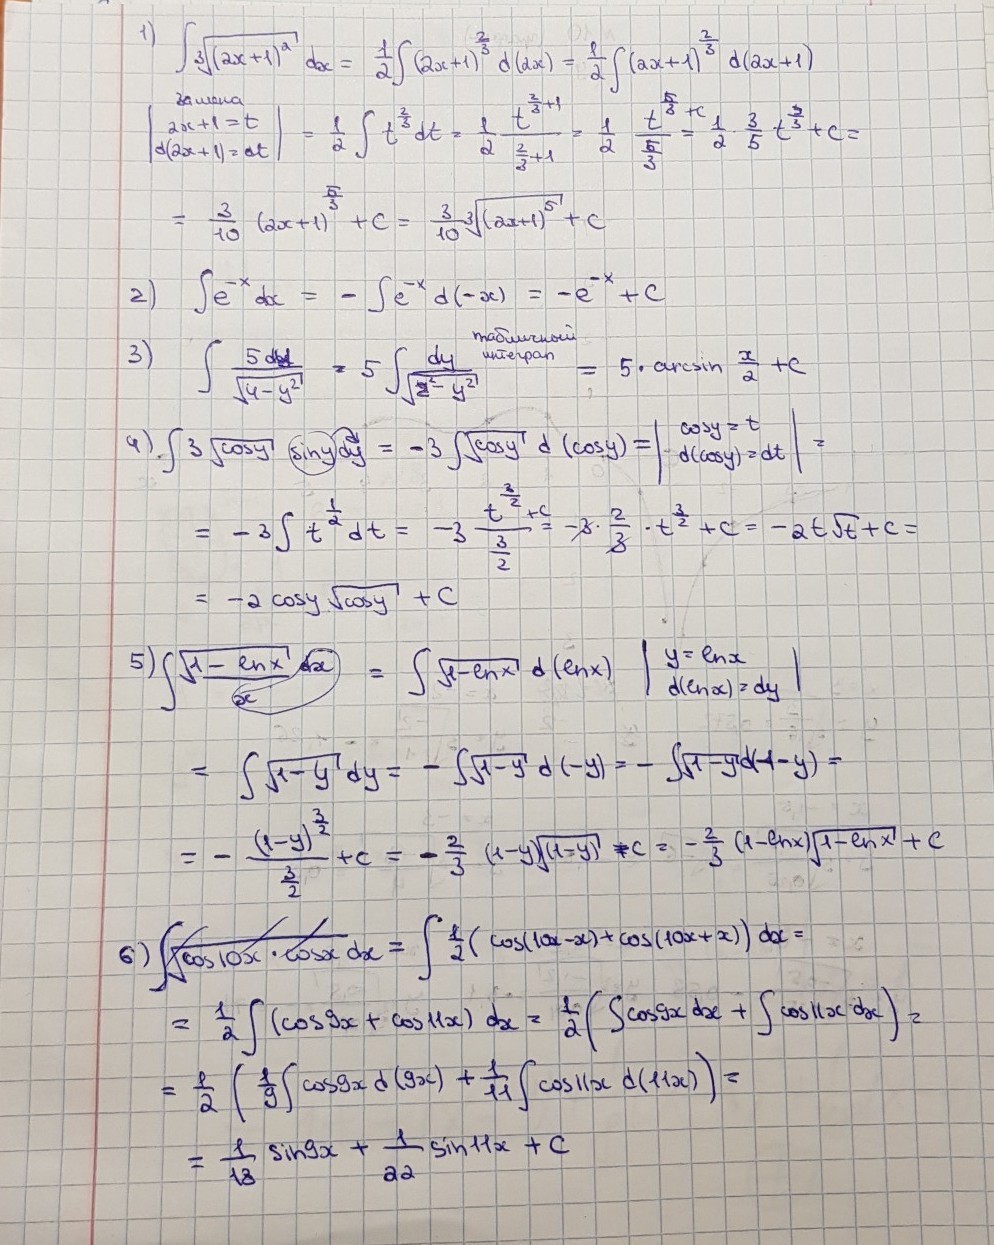 1) ∫ ∛(2x+1)² dx = 1/2 ∫ (2x+1)^(2/3) d(2x) = 1/2 ∫ (2x+1)^(2/3) d(2x+1)
замена
| 2x+1 = t
d(2x+1) = dt | = 1/2 ∫ t^(2/3) dt = 1/2 t^(2/3+1)/(2/3+1) = 1/2 t^(5/3)/(5/3) + c = 1/2 · 3/5 t^(5/3) + c =
= 3/10 (2x+1)^(5/3) + c = 3/10 ∛(2x+1)⁵ + c
2) ∫ e^(-x) dx = - ∫ e^(-x) d(-x) = -e^(-x) + c
3) ∫ 5dy/√(4-y²) = 5 ∫ dy/√(2²-y²) табличный интеграл = 5 · arcsin x/2 + c
4) ∫ 3 √cosy siny dy = -3 ∫ √cosy d(cosy) = | cosy = t
d(cosy) = dt | =
= -3 ∫ t^(1/2) dt = -3 t^(3/2)/(3/2) + c = -3 · 2/3 · t^(3/2) + c = -2t√t + c =
= -2 cosy √cosy + c
5) ∫ √(1-lnx) dx / x = ∫ √(1-lnx) d(lnx) | y = lnx
d(lnx) = dy |
= ∫ √(1-y) dy = - ∫ √(1-y) d(-y) = - ∫ √(1-y) d(1-y) =
= - (1-y)^(3/2)/(3/2) + c = - 2/3 (1-y)√(1-y) + c = - 2/3 (1-lnx)√(1-lnx) + c
6) ∫ cos10x · cosx dx = ∫ 1/2 (cos(10x-x) + cos(10x+x)) dx =
= 1/2 ∫ (cos9x + cos11x) dx = 1/2 (∫ cos9x dx + ∫ cos11x dx) =
= 1/2 (1/9 ∫ cos9x d(9x) + 1/11 ∫ cos11x d(11x)) =
= 1/18 sin9x + 1/22 sin11x + c